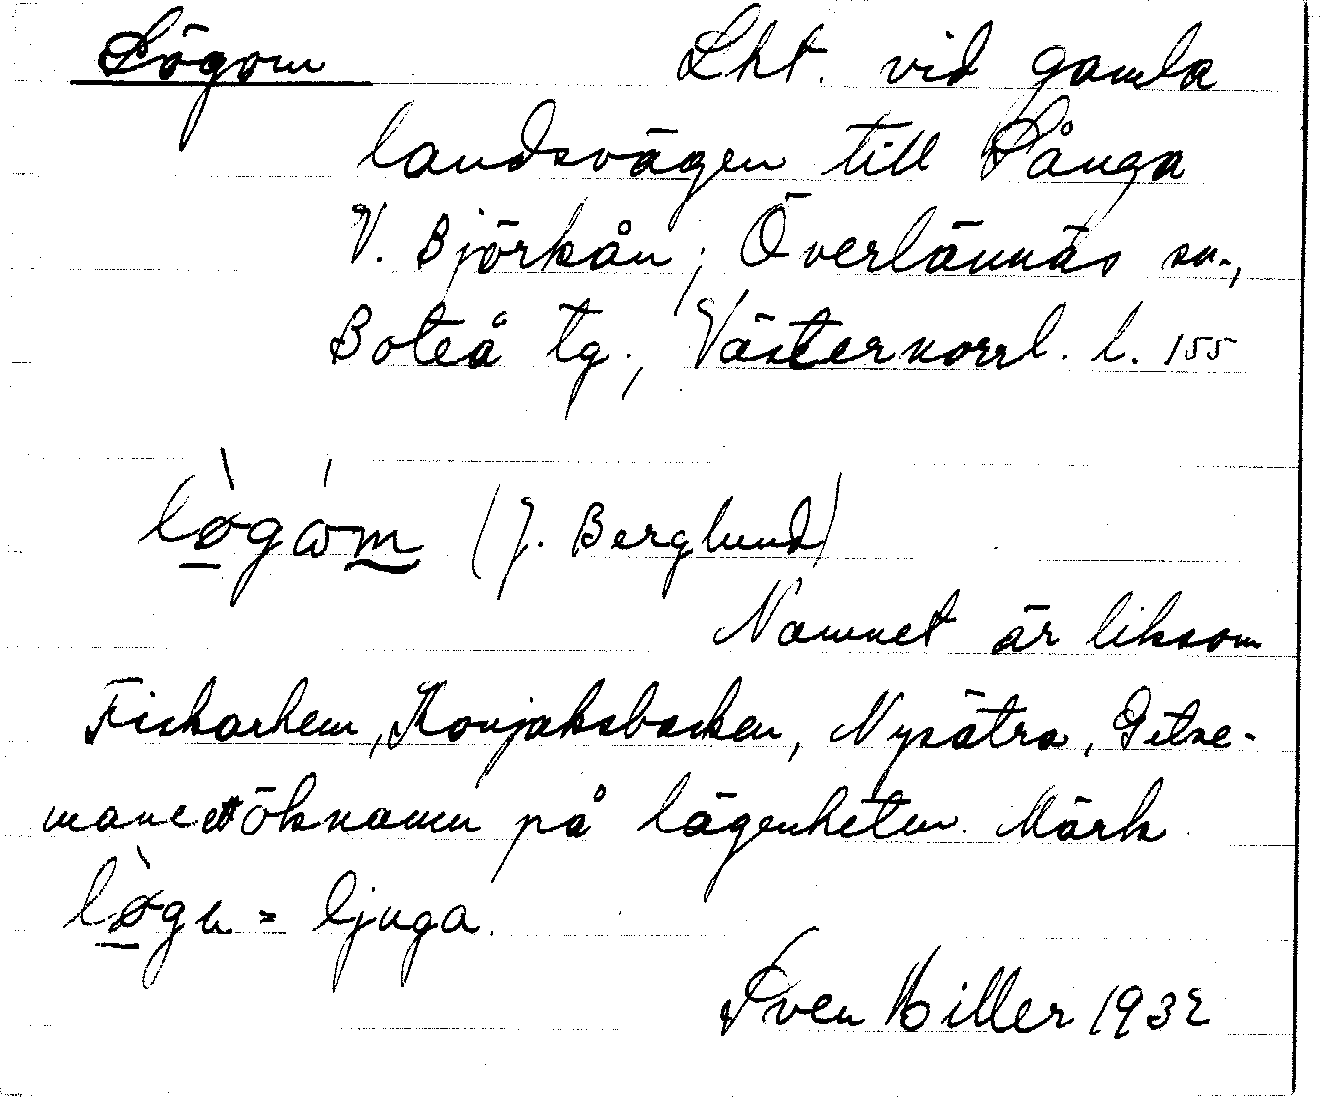 Lögom Lht. vid gamla
landsvägen till Sånga
V. Björkån, Överlännäs sn.,
Boteå tg., Västernorrl. l. 155
lø̀gώm (J. Berglund)
Namnet är liksom
Fiskarhem, Konjaksbacken, Nysätra, Getse-
mane ett öknamn på lägenheten. Märk
lø̀gu = ljuga.
Sven Hiller 1932